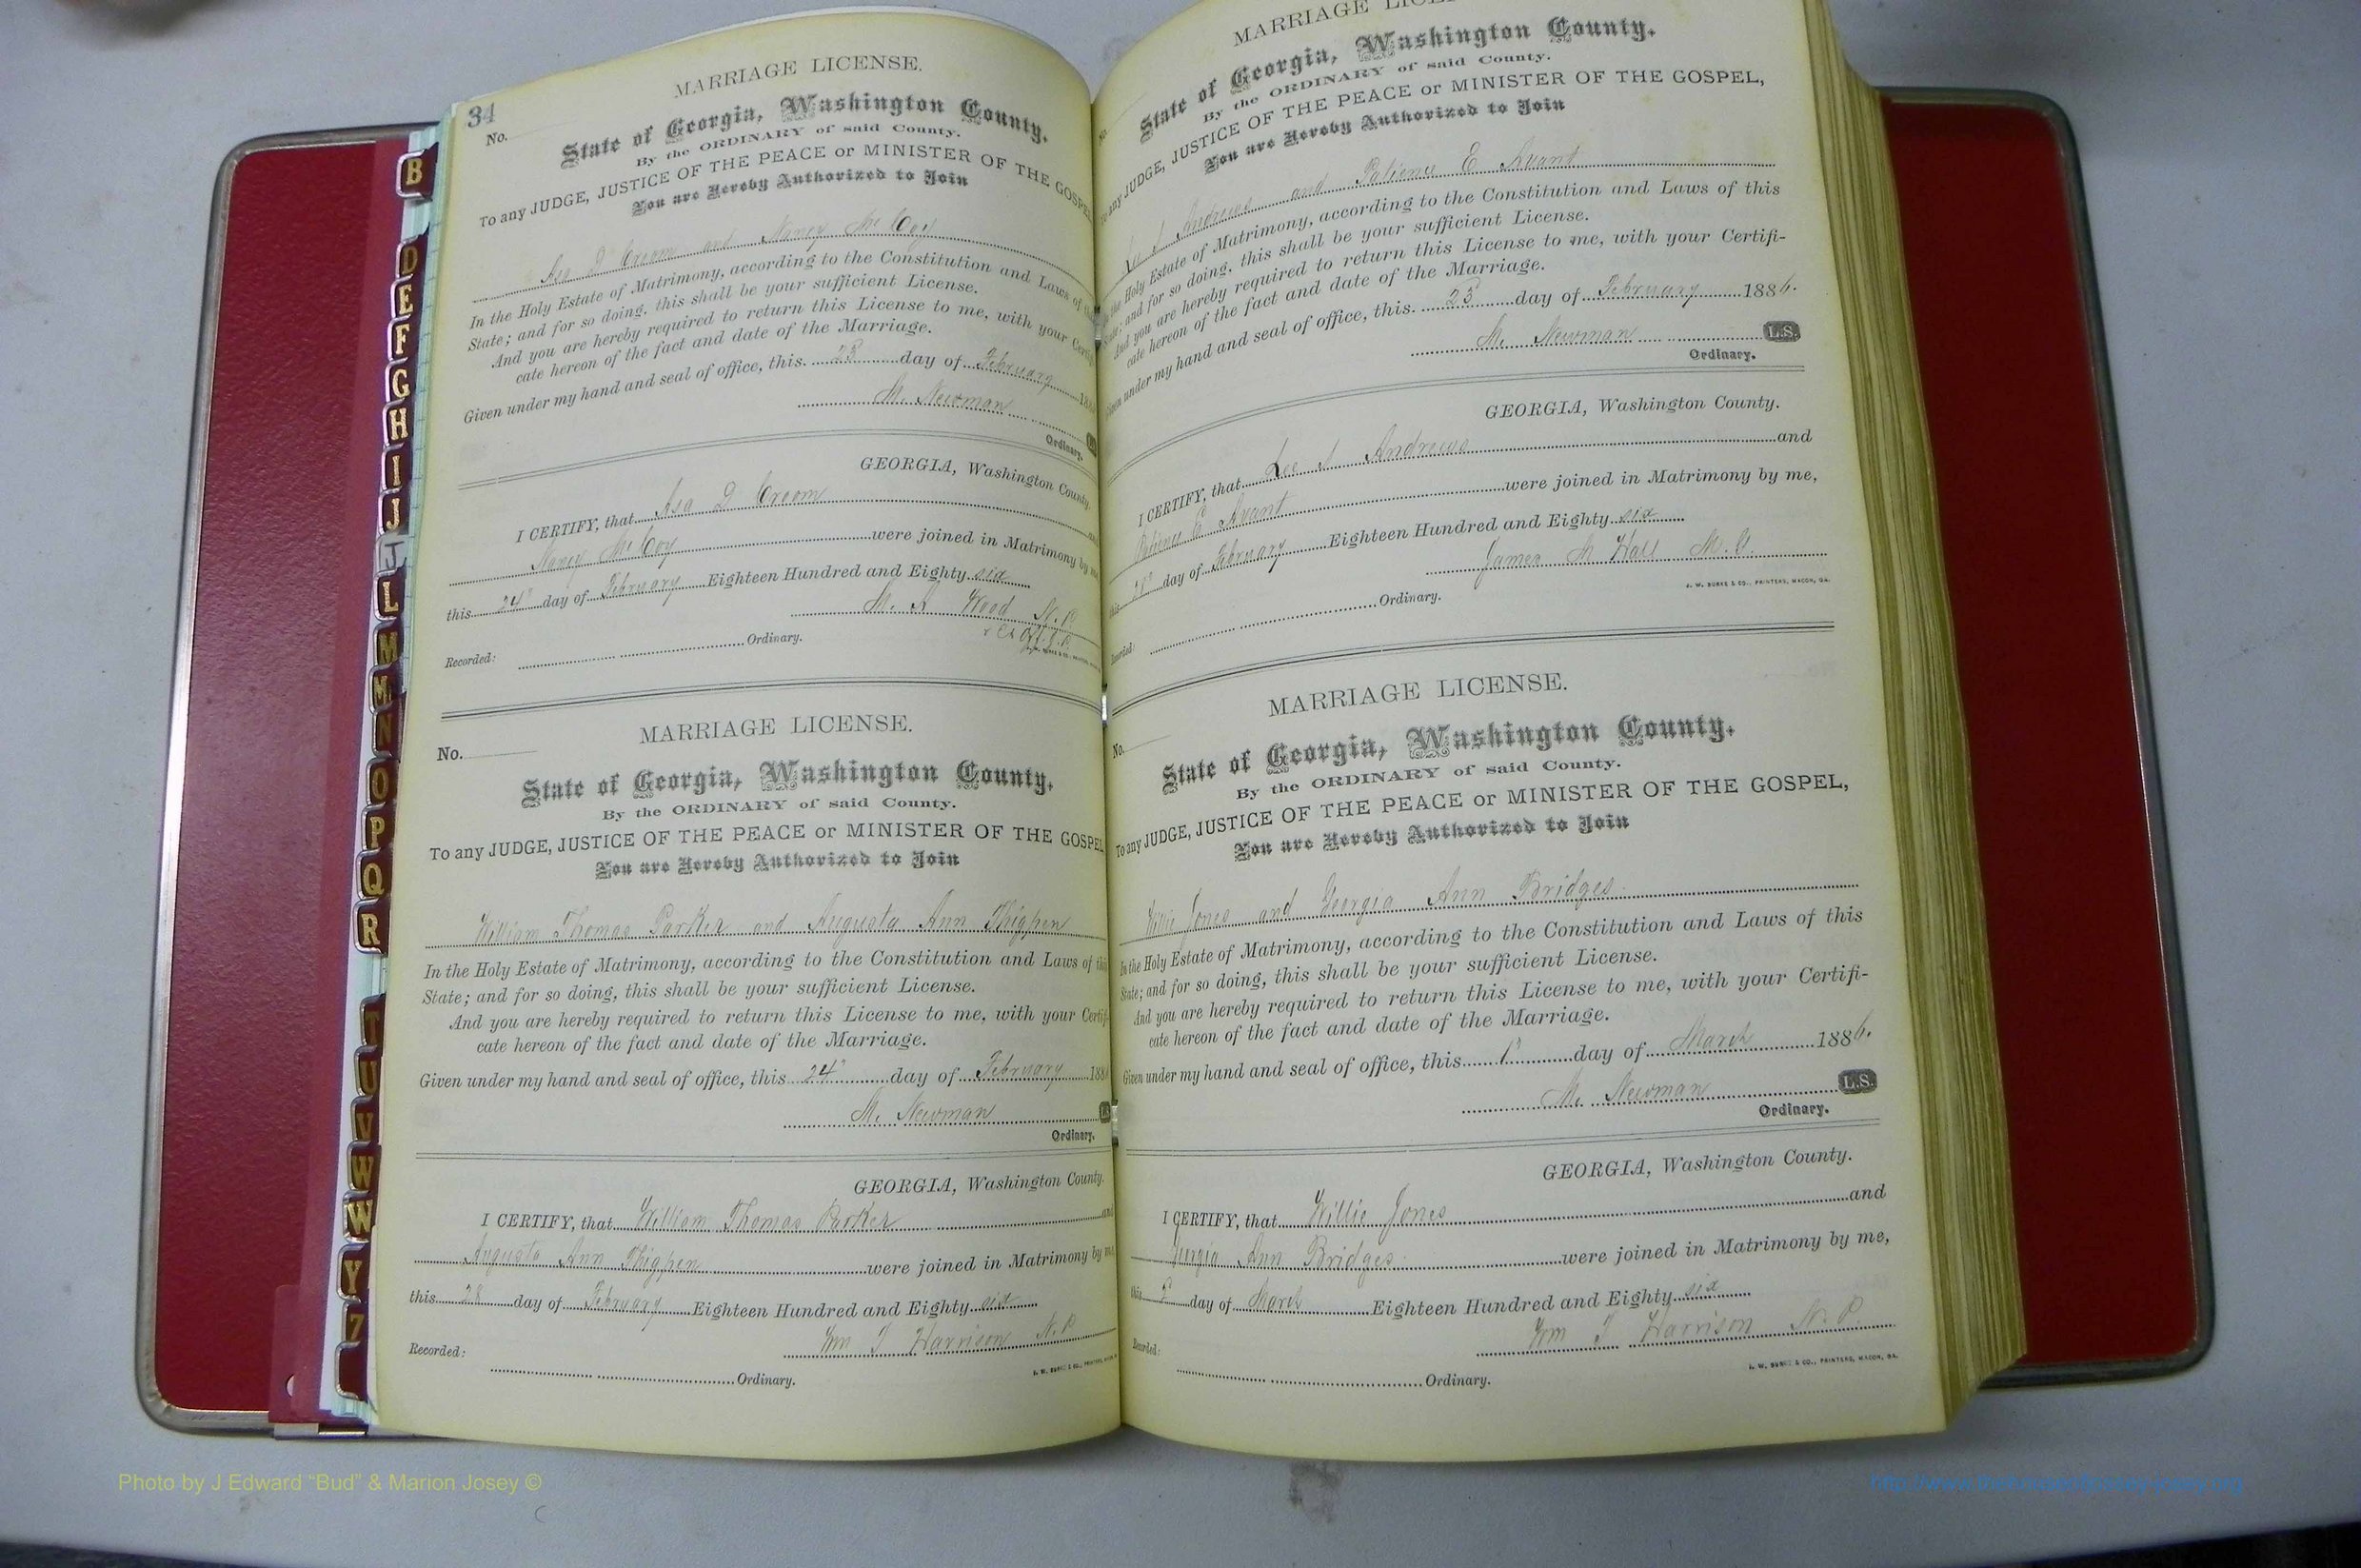 34
MARRIAGE LICENSE.
No.
State of Georgia, Washington County.
By the ORDINARY of said County.
To any JUDGE, JUSTICE OF THE PEACE or MINISTER OF THE GOSPEL
You are Hereby Authorized to Join
Asa D Croom and Nancy McCoy
In the Holy Estate of Matrimony, according to the Constitution and Laws of
State; and for so doing, this shall be your sufficient License.
And you are hereby required to return this License to me, with your Certifi
cate hereon of the fact and date of the Marriage.
Given under my hand and seal of office, this 23 day of February 188
M. Newman
Ordinary.
GEORGIA, Washington County.
I CERTIFY, that Asa D Croom
Nancy McCoy were joined in Matrimony by me
this 24" day of February Eighteen Hundred and Eighty six
M. A Wood N. P
Recorded: Ordinary.
MARRIAGE LICENSE.
No.
State of Georgia, Washington County.
By the ORDINARY of said County.
To any JUDGE, JUSTICE OF THE PEACE or MINISTER OF THE GOSPEL
You are Hereby Authorized to Join
William Thomas Parker and Augusta Ann Thigpen
In the Holy Estate of Matrimony, according to the Constitution and Laws of this
State; and for so doing, this shall be your sufficient License.
And you are hereby required to return this License to me, with your Certifi
cate hereon of the fact and date of the Marriage.
Given under my hand and seal of office, this 24" day of February 188
M. Newman
Ordinary.
GEORGIA, Washington County.
I CERTIFY, that William Thomas Parker and
Augusta Ann Thigpen were joined in Matrimony by me
this 28 day of February Eighteen Hundred and Eighty six
Wm T Harrison N. P
Recorded:
Ordinary.
MARRIAGE
State of Georgia, Washington County.
By the ORDINARY of said County.
To any JUDGE, JUSTICE OF THE PEACE or MINISTER OF THE GOSPEL,
You are Hereby Authorized to Join
Andrews and Patience E Avant
the Holy Estate of Matrimony, according to the Constitution and Laws of this
State; and for so doing, this shall be your sufficient License.
And you are hereby required to return this License to me, with your Certifi-
cate hereon of the fact and date of the Marriage.
Given under my hand and seal of office, this 23 day of February 1886.
M. Newman L.S.
Ordinary.
GEORGIA, Washington County.
I CERTIFY, that Lee Andrews and
Patience E Avant were joined in Matrimony by me,
this day of February Eighteen Hundred and Eighty six
James M Hall M. G.
J. W. BURKE & CO., PRINTERS, MACON, GA.
Recorded: Ordinary.
MARRIAGE LICENSE.
No.
State of Georgia, Washington County.
By the ORDINARY of said County.
To any JUDGE, JUSTICE OF THE PEACE or MINISTER OF THE GOSPEL,
You are Hereby Authorized to Join
Willie Jones and Georgia Ann Bridges
In the Holy Estate of Matrimony, according to the Constitution and Laws of this
State; and for so doing, this shall be your sufficient License.
And you are hereby required to return this License to me, with your Certifi-
cate hereon of the fact and date of the Marriage.
Given under my hand and seal of office, this 1" day of March 1886.
M. Newman L.S.
Ordinary.
GEORGIA, Washington County.
I CERTIFY, that Willie Jones and
Georgia Ann Bridges were joined in Matrimony by me,
this day of March Eighteen Hundred and Eighty six
Wm T Harrison N. P.
J. W. BURKE & CO., PRINTERS, MACON, GA.
Recorded:
Ordinary.
B
D
E
F
G
H
I
J
J
L
M
M
N
O
P
Q
R
T
U
V
W
W
Y
Z
Photo by J Edward “Bud” & Marion Josey ©